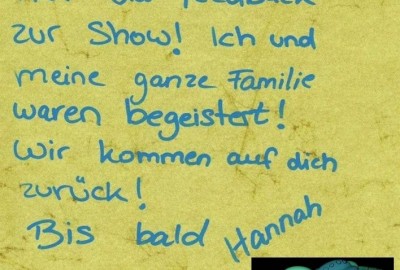 Feedback
zur Show! Ich und
meine ganze Familie
waren begeistert!
Wir kommen auf dich
zurück!
Bis bald Hannah